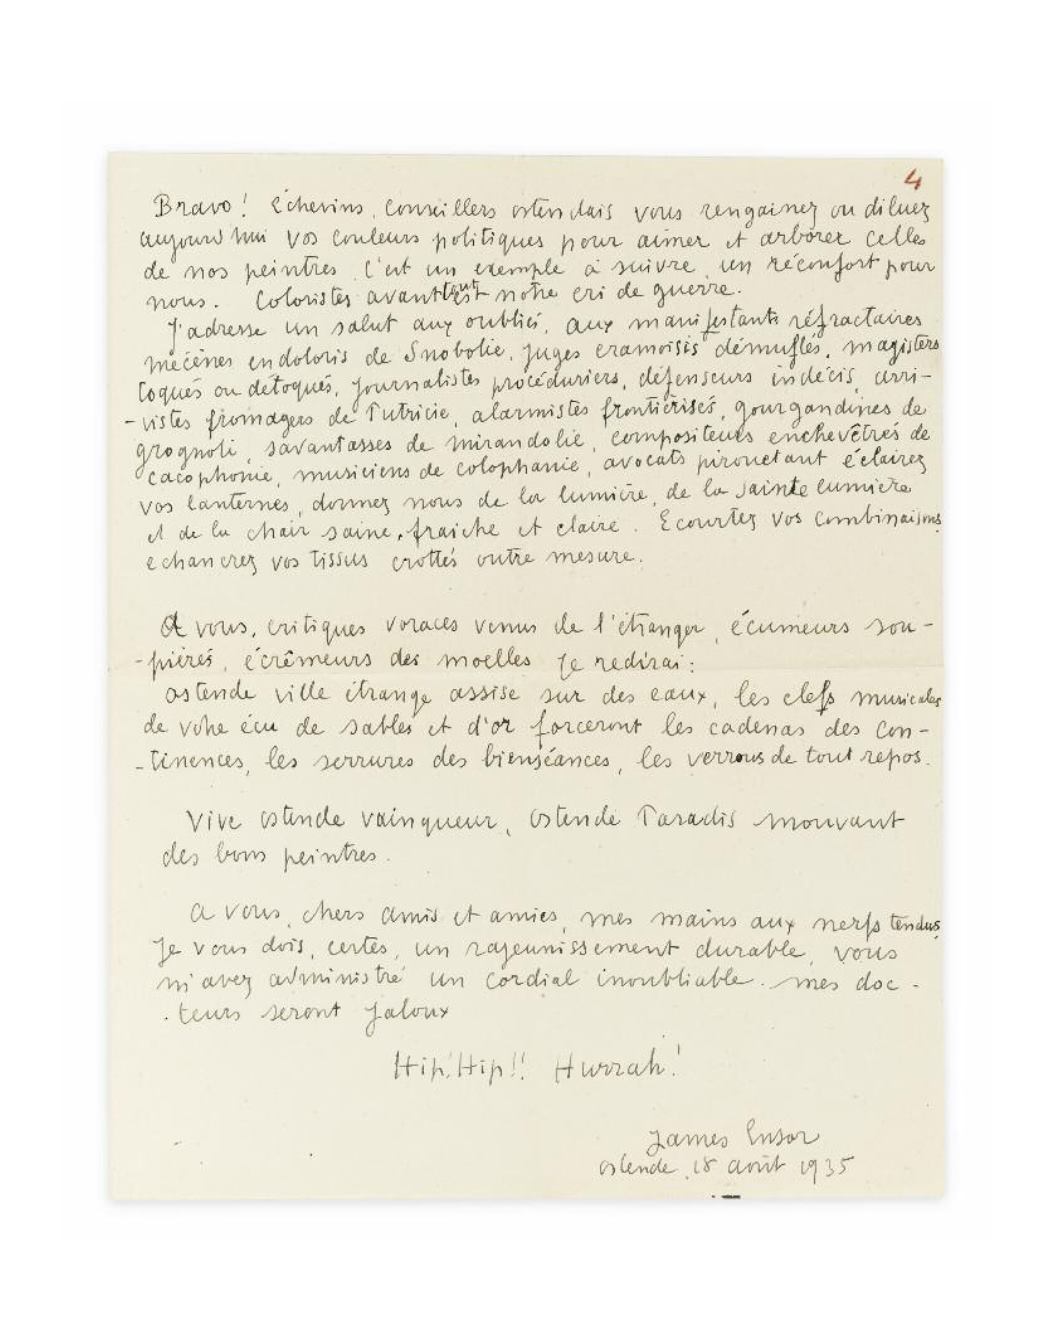 4
Bravo! échevins, conseillers ostendais vous rengainez ou diluez
aujourd'hui vos couleurs politiques pour aimer et arborer celles
de nos peintres, c'est un exemple à suivre, un réconfort pour
nous. Coloristes avant tout est notre cri de guerre.
J'adresse un salut aux oubliés, aux manifestants réfractaires
mécènes endoloris de Snobolie, juges cramoisis démuflés, magisters
toqués ou détoqués, journalistes procéduriers, défenseurs indécis, arri-
-vistes fromagers de Putricie, alarmistes frontiérisés, gourgandines de
grognoli, savantasses de mirandolie, compositeurs enchevêtrés de
cacophonie, musiciens de colophanie, avocats pirouettant éclairez
vos lanternes, donnez nous de la lumière, de la sainte lumière
et de la chair saine, fraiche et claire. Ecourtez vos combinaisons
echancrez vos tissus crottés outre mesure.
A vous, critiques voraces venus de l'étranger, écumeurs sou-
-piérés, écrêmeurs des moelles je redirai:
ostende ville étrange assise sur des eaux, les clefs musicales
de votre écu de sables et d'or forceront les cadenas des con-
-tinences, les serrures des bienséances, les verrous de tout repos.
Vive ostende vainqueur, ostende Paradis mouvant
des bons peintres.
A vous, chers amis et amies, mes mains aux nerfs tendus,
je vous dois, certes, un rajeunissement durable, vous
m'avez administré un cordial inoubliable. mes doc-
-teurs seront jaloux
Hip! Hip!! Hurrah!
James Ensor
ostende, 18 août 1935